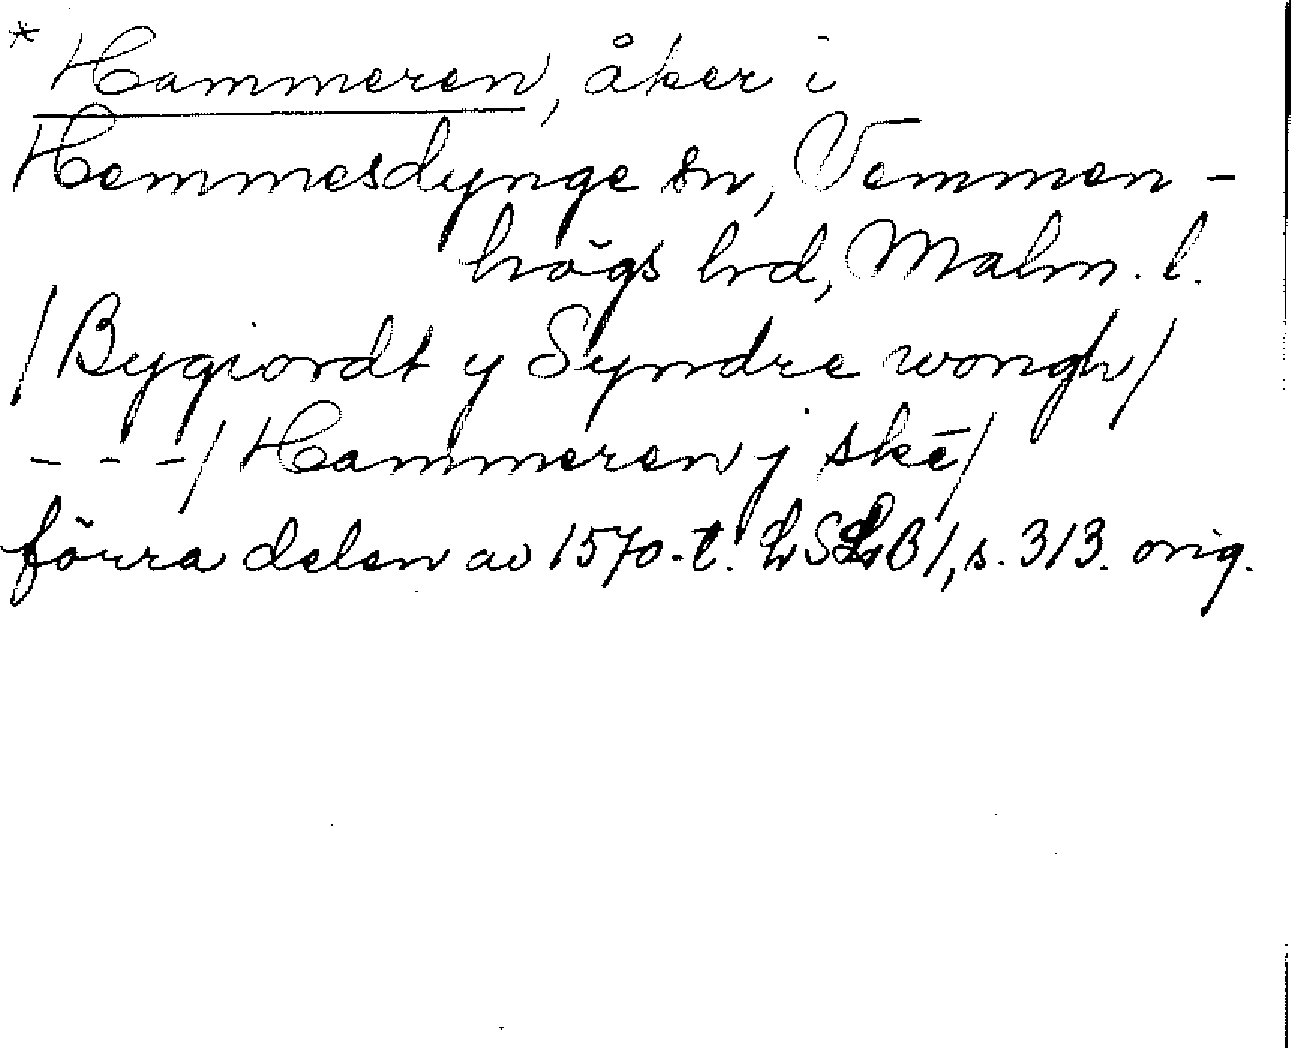 * Hammeren, åker i
Hemmesdynge sn, Vemmen-
högs hrd, Malm. l.
/Bygiordt y Syndre wongh/
- - -/Hammeren j skē/
förra delen av 1570-t. LSLB1, s. 313. orig.